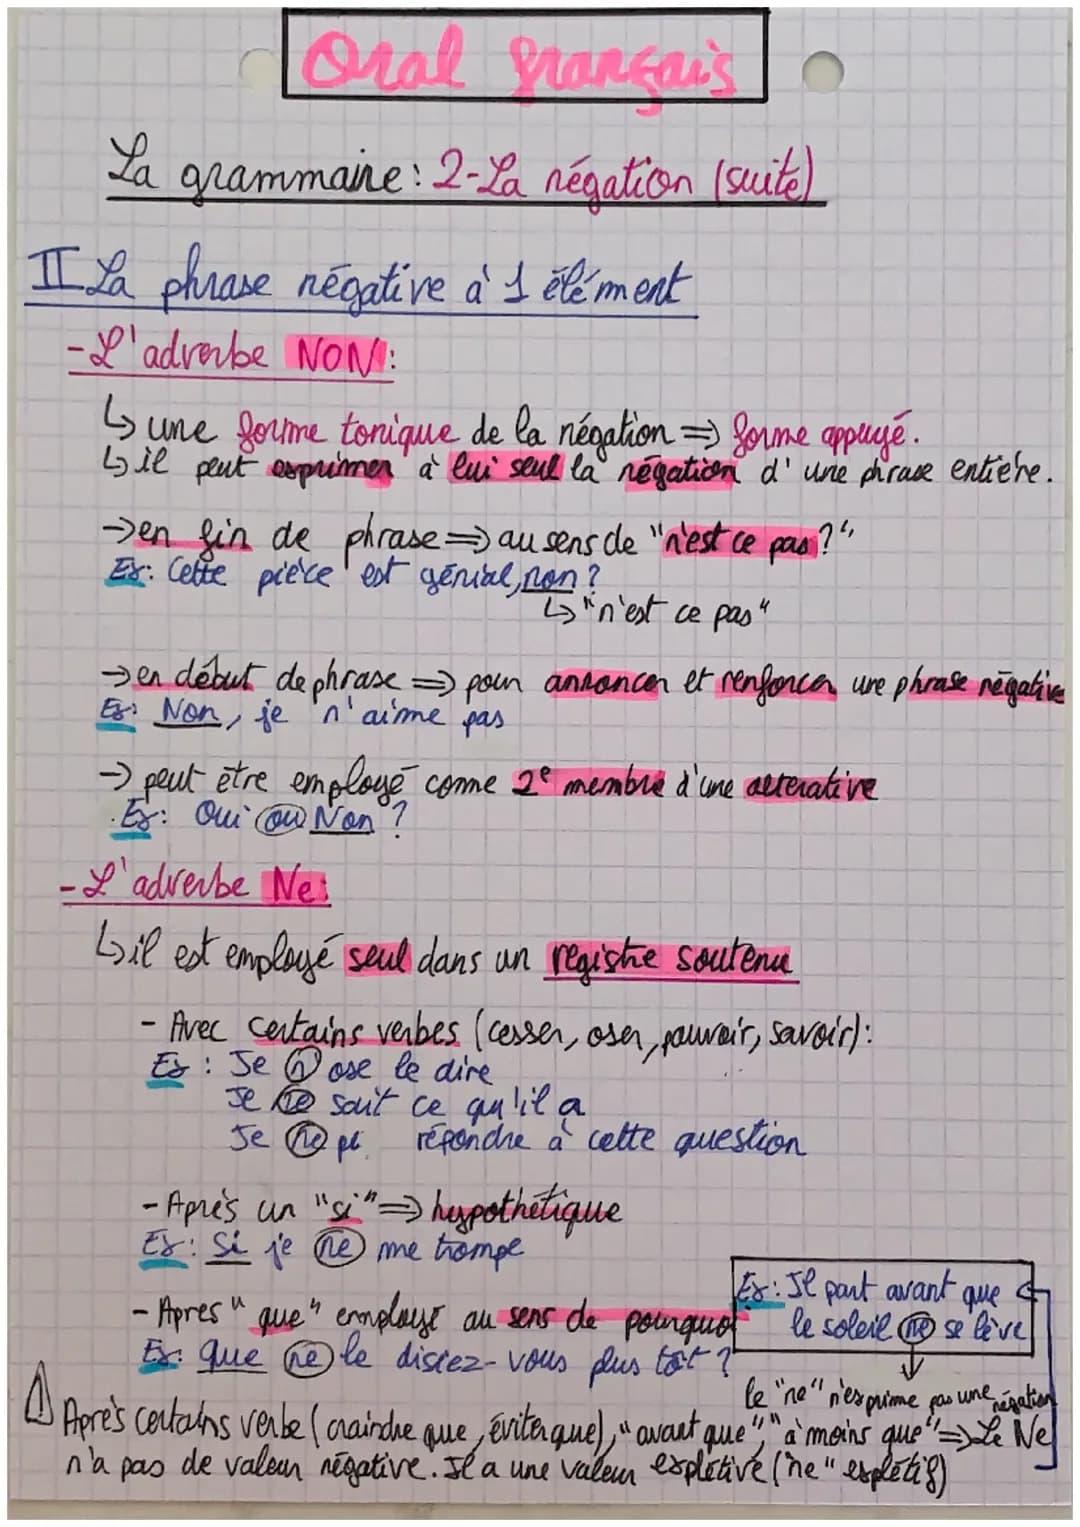 Oral français
La grammaire : 2-La négation (suite)
II La phrase négative à 1 élément
-L'adverbe NON :
↳ une forme tonique de la négation ⇒ forme appuyé.
↳ il peut exprimer à lui seul la négation d'une phrase entière.
→ en fin de phrase ⇒ au sens de "n'est ce pas ?",
Ex: Cette pièce est génial, non ?
↳ "n'est ce pas"
→ en début de phrase ⇒ pour annoncer et renforcer une phrase négative
Ex: Non, je n'aime pas
→ peut être employé comme 2e membre d'une alterative
Ex: Oui ou Non ?
-L'adverbe Ne :
↳ il est employé seul dans un registre soutenu
- Avec certains verbes (cesser, oser, pouvoir, savoir) :
Ex : Je n'ose le dire
Je ne sait ce qu'il a
Je ne répondre à cette question
- Après un "si" ⇒ hypothétique
Ex: Si je ne me trompe
- Apres "que" employé au sens de pourquoi
Ex: que ne le disiez-vous plus tôt ?
Ex: Il part avant que
le soleil ne se lève
le "ne" n'exprime pas une négation
⚠ Après certains verbe (craindre que, éviter que), "avant que", "à moins que" ⇒ Le Ne
n'a pas de valeur négative. Il a une valeur explétive ("ne" explétif)